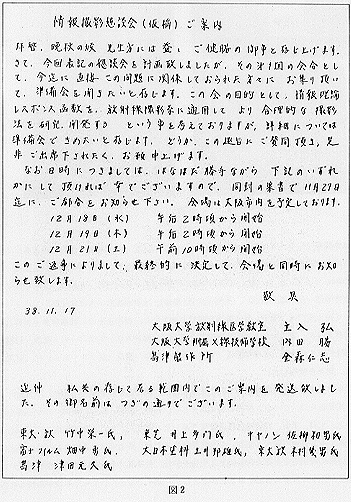 情報撮影懇談会(仮称)ご案内
拝啓、晩秋の候 先生方には益々ご健勝の御事と存じ上げます。
さて、今回表記の懇談会を計画致しましたが、その才1回の会合とし
て、今迄に直接この問題に関係しておられた方々に お集り頂い
て、準備会を開きたいと存じます。この会の目的として、情報理論
レスポンス函数を、放射線撮影系に適用して より合理的な撮影
法を研究、開発する という事を考えておりますが、詳細については
準備会できめたいと存じます。どうか、この趣旨にご賛同頂き、是
非ご出席下されたく、お願い申上げます。
なお日時につきましては、はなはだ勝手ながら 下記のいずれ
かにして頂ければ幸でございますので、同封の葉書で11月27日
迄に、ご都合をお知らせ下さい。会場は大阪市内を予定しております。
12月18日(水) 午后2時頃から開始
12月19日(木) 午后2時頃から開始
12月21日(土) 午前10時頃から開始
このご返事によりまして、最終的に決定して、会場と同時にお知
らせ致します。
敬具
38.11.17
大阪大学放射線医学教室 主入 弘
大阪大学附属X線技師学校 内田 勝
島津製作所 金森仁志
追伸 私共の存じて居る範囲内でこのご案内を発送致しまし
た。その御名前は つぎの通りでございます。
東大・放 竹中栄一氏、東芝 井上多門氏、キヤノン 佐柳和男氏
富士フイルム 畑中 氏、大日本塗料 土井邦雄氏、京大放 木村 氏
島津 津田元久氏
図2